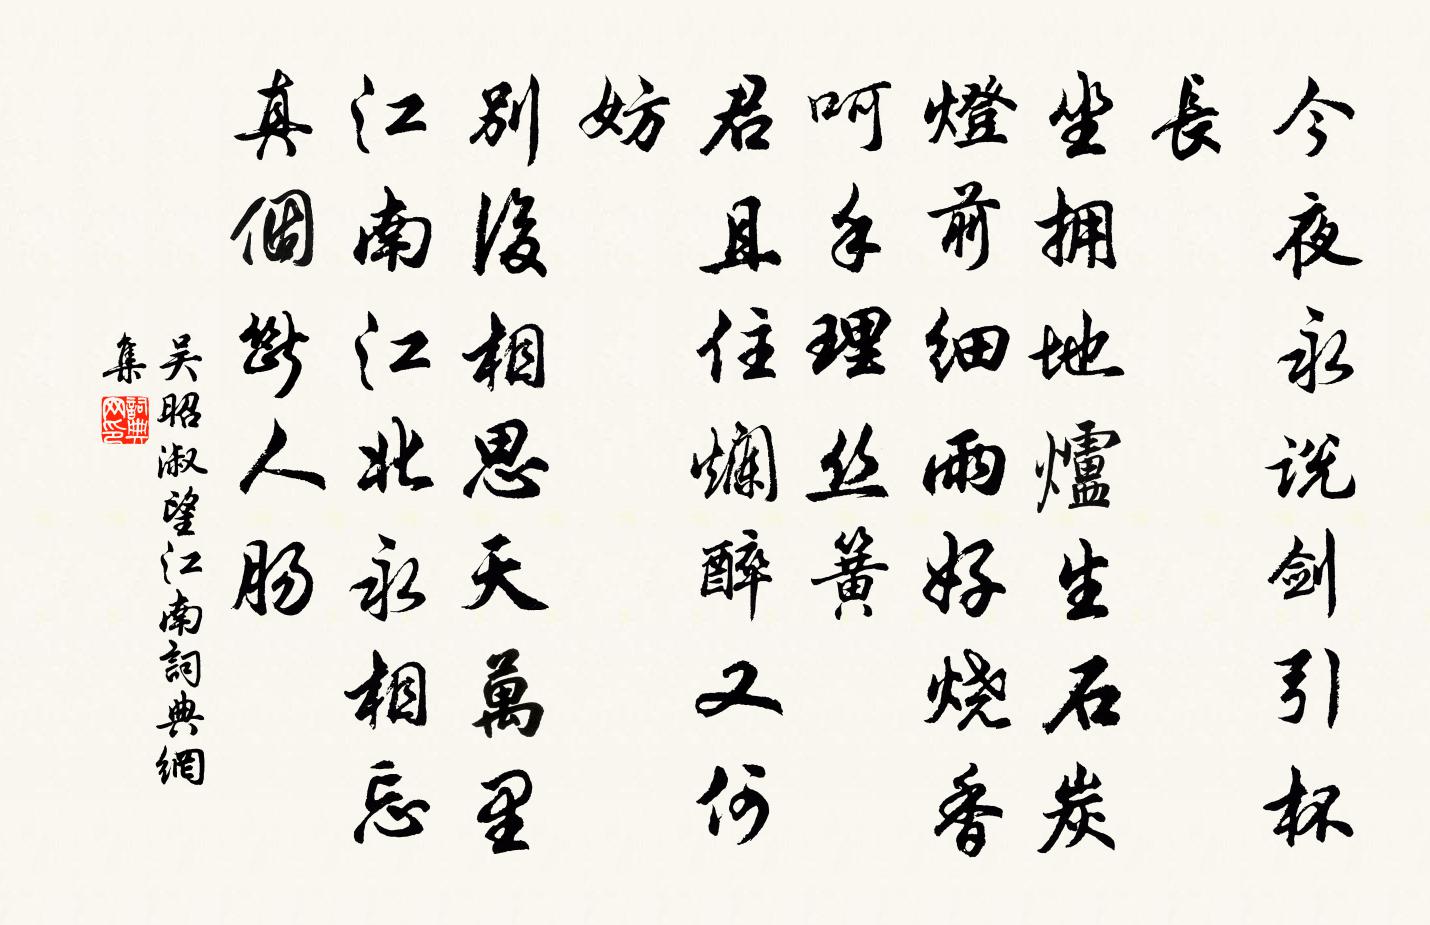 今夜永说剑引杯
長
坐拥地爐生石炭
燈前细雨好烧香
呵手理丝簧
君且住爛醉又何
妨
别後相思天萬里
江南江北永相忘
真個斷人肠
吴昭淑望江南詞典網
集
詞典
网印